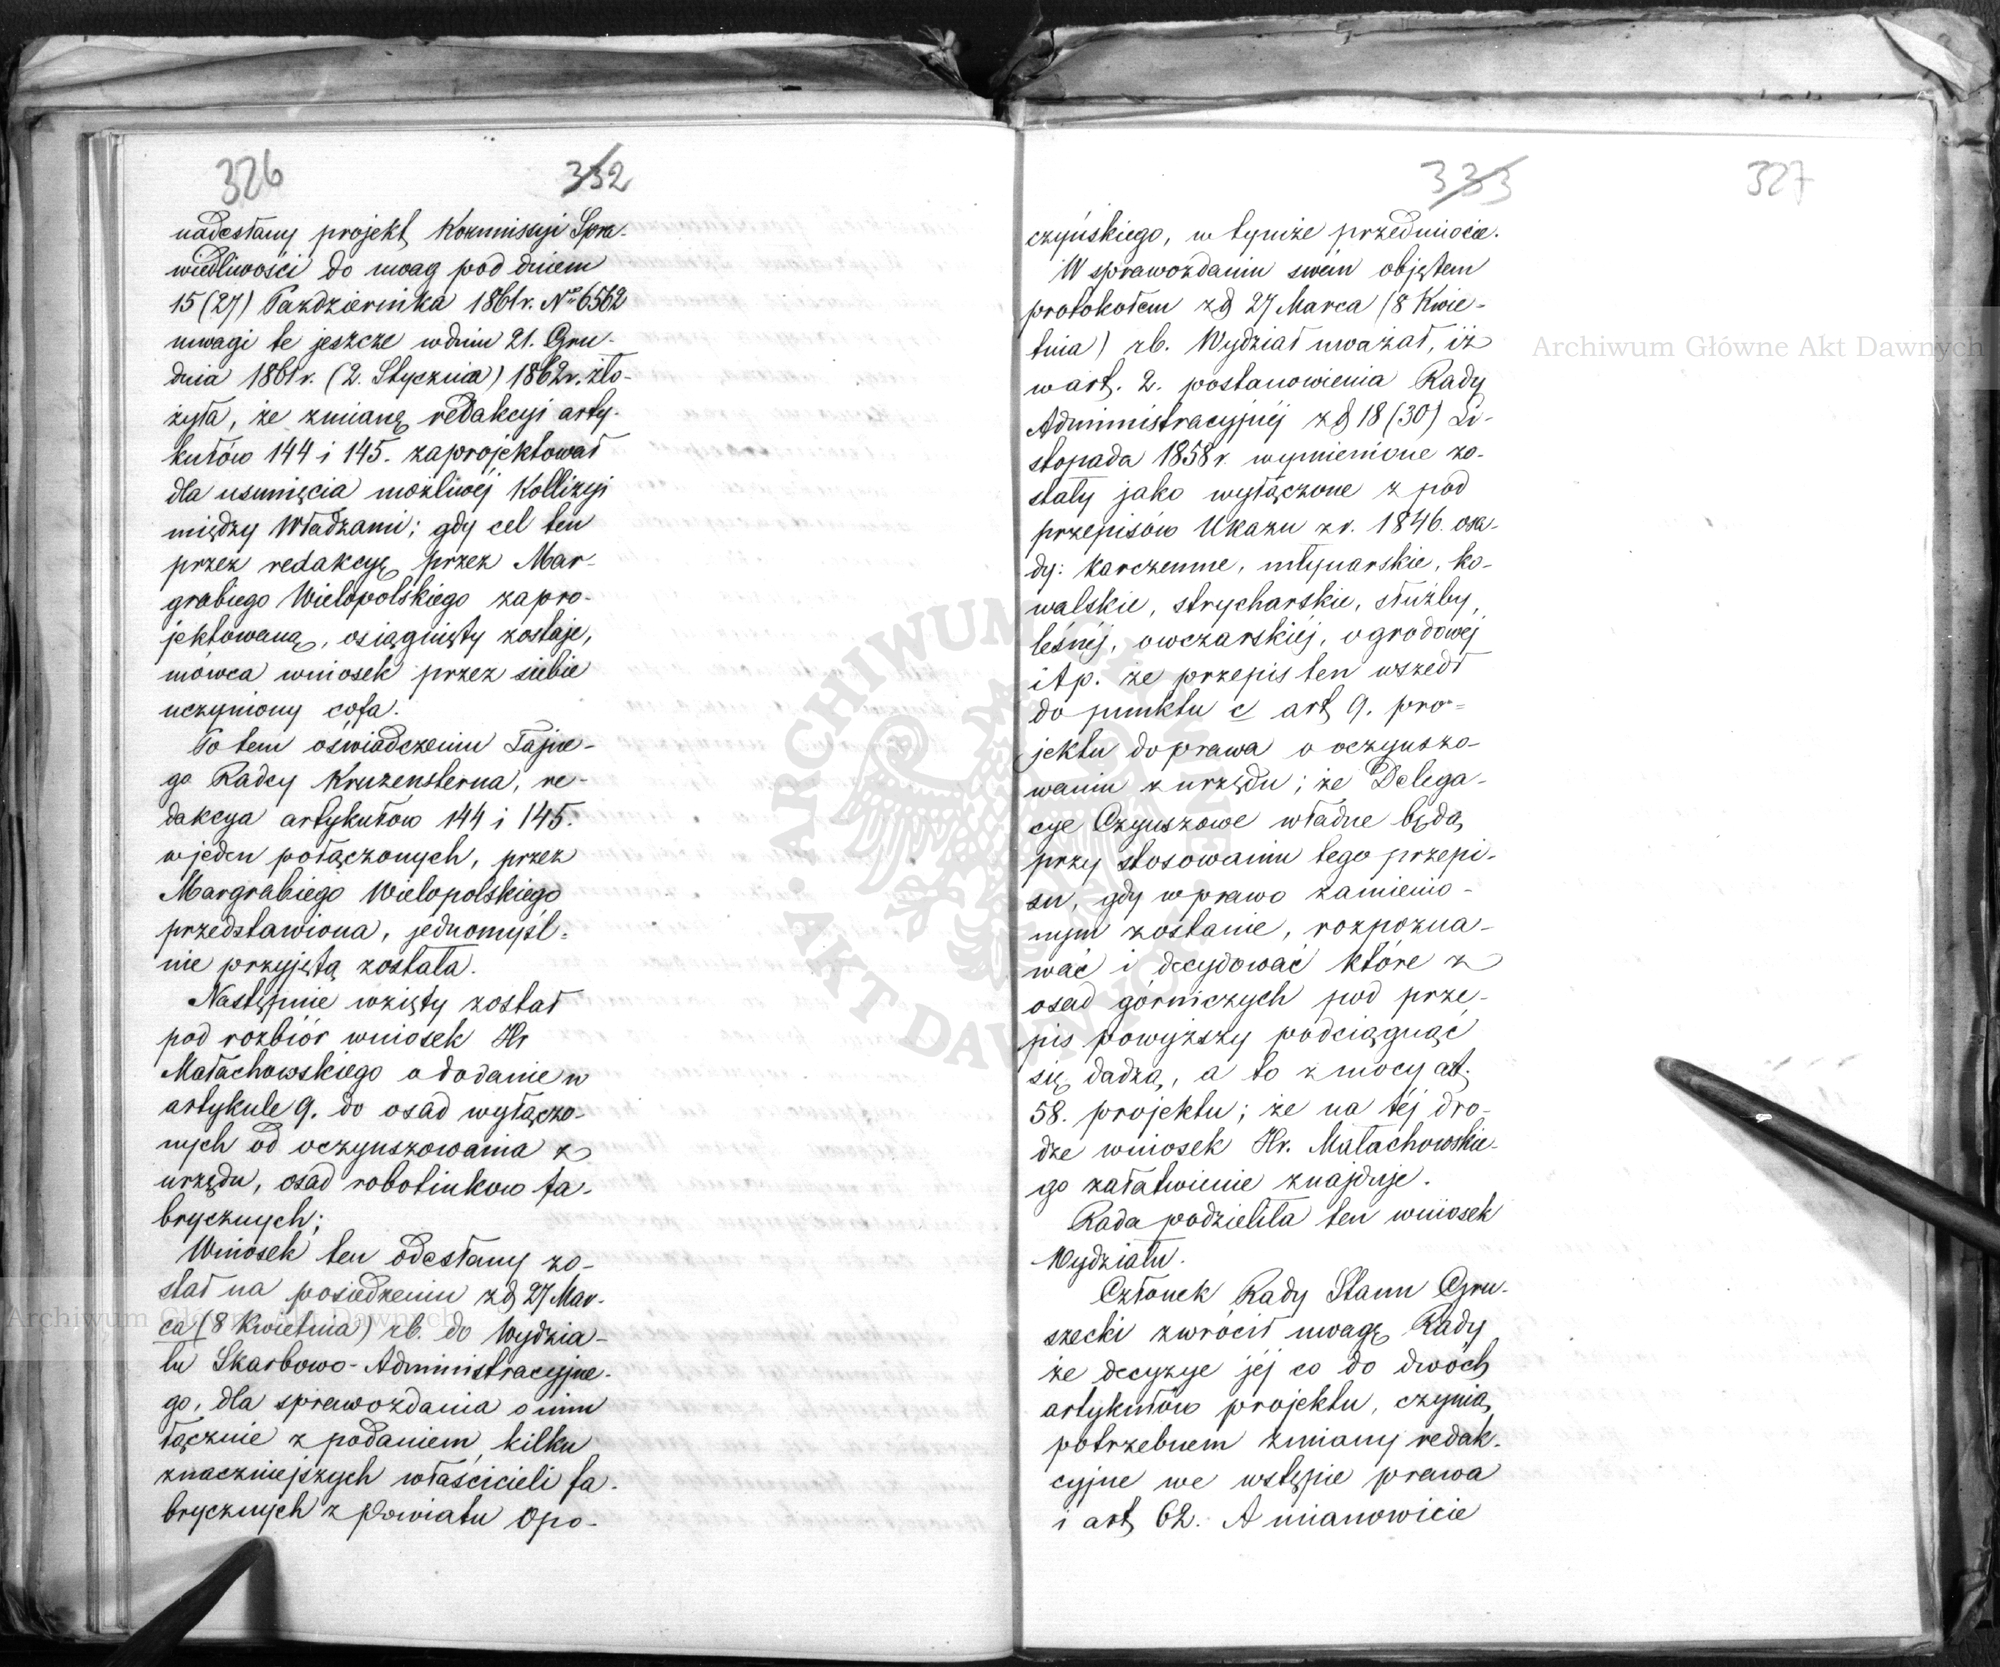 326
332
nadesłany projekt Kommissyi Spra-
wiedliwości do uwag pod dniem
15 (27) Października 1861 r. No 6562
uwagi te jeszcze w dniu 21. Gru-
dnia 1861 r. (2. Stycznia) 1862 r. zło-
żyła, że zmianę redakcyi arty-
kułów 144 i 145. zaprojektował
dla usunięcia możliwéj Kollizyi
między Władzami; gdy cel ten
przez redakcyę przez Mar-
grabiego Wielopolskiego zapro-
jektowaną, osiągnięty zostaje,
mówca wniosek przez siebie
uczyniony cofa.
Po tem oświadczeniu Tajne-
go Radcy Kruzensterna, re-
dakcya artykułów 144 i 145.
w jeden połączonych, przez
Margrabiego Wielopolskiego
przedstawiona, jednomyśl-
nie przyjętą została.
Następnie wzięty został
pod rozbiór wniosek Hr
Małachowskiego o dodanie w
artykule 9. do osad wyłączo-
nych od oczynszowania z
urzędu, osad robotników fa-
brycznych;
Wniosek ten odesłany zo-
stał na posiedzeniu z d 27 Mar-
ca (8 Kwietnia) r b. do Wydzia-
łu Skarbowo-Administracyjne-
go, dla sprawozdania o nim
łącznie z podaniem kilku
znaczniejszych właścicieli fa-
brycznych z Powiatu Opo-
333
327
czyńskiego, w tymże przedmiocie.
W sprawozdaniu swém objętem
protokółem z d 27 Marca (8 Kwie-
tnia) r b. Wydział uważał, iż
w art. 2. postanowienia Rady
Administracyjnéj z d 18 (30) Li-
stopada 1858 r. wymienione zo-
stały jako wyłączone z pod
przepisów Ukazu z r. 1846. osa-
dy: karczemne, młynarskie, ko-
walskie, strycharskie, służby
leśnéj, owczarskiéj, ogrodowéj
i t p. że przepis ten wszedł
do punktu c art 9. pro-
jektu do prawa o oczynszo-
waniu z urzędu; że Delega-
cye Czynszowe władne będą
przy stosowaniu tego przepi-
su, gdy w prawo zamienio-
nym zostanie, rozpozna-
wać i decydować które z
osad górniczych pod prze-
pis powyższy podciągnąć
się dadzą, a to z mocy art.
58. projektu; że na téj dro-
dze wniosek Hr. Małachowskie-
go załatwienie znajduje.
Rada podzieliła ten wniosek
Wydziału.
Członek Rady Stanu Gru-
szecki zwrócił uwagę Rady
że decyzye jéj co do dwóch
artykułów projektu, czynią
potrzebnem zmiany redak-
cyjne we wstępie prawa
i art 62. A mianowicie
Archiwum Główne Akt Dawnych
Archiwum Główne Akt Dawnych
ARCHIWUM GŁÓWNE AKT DAWNYCH